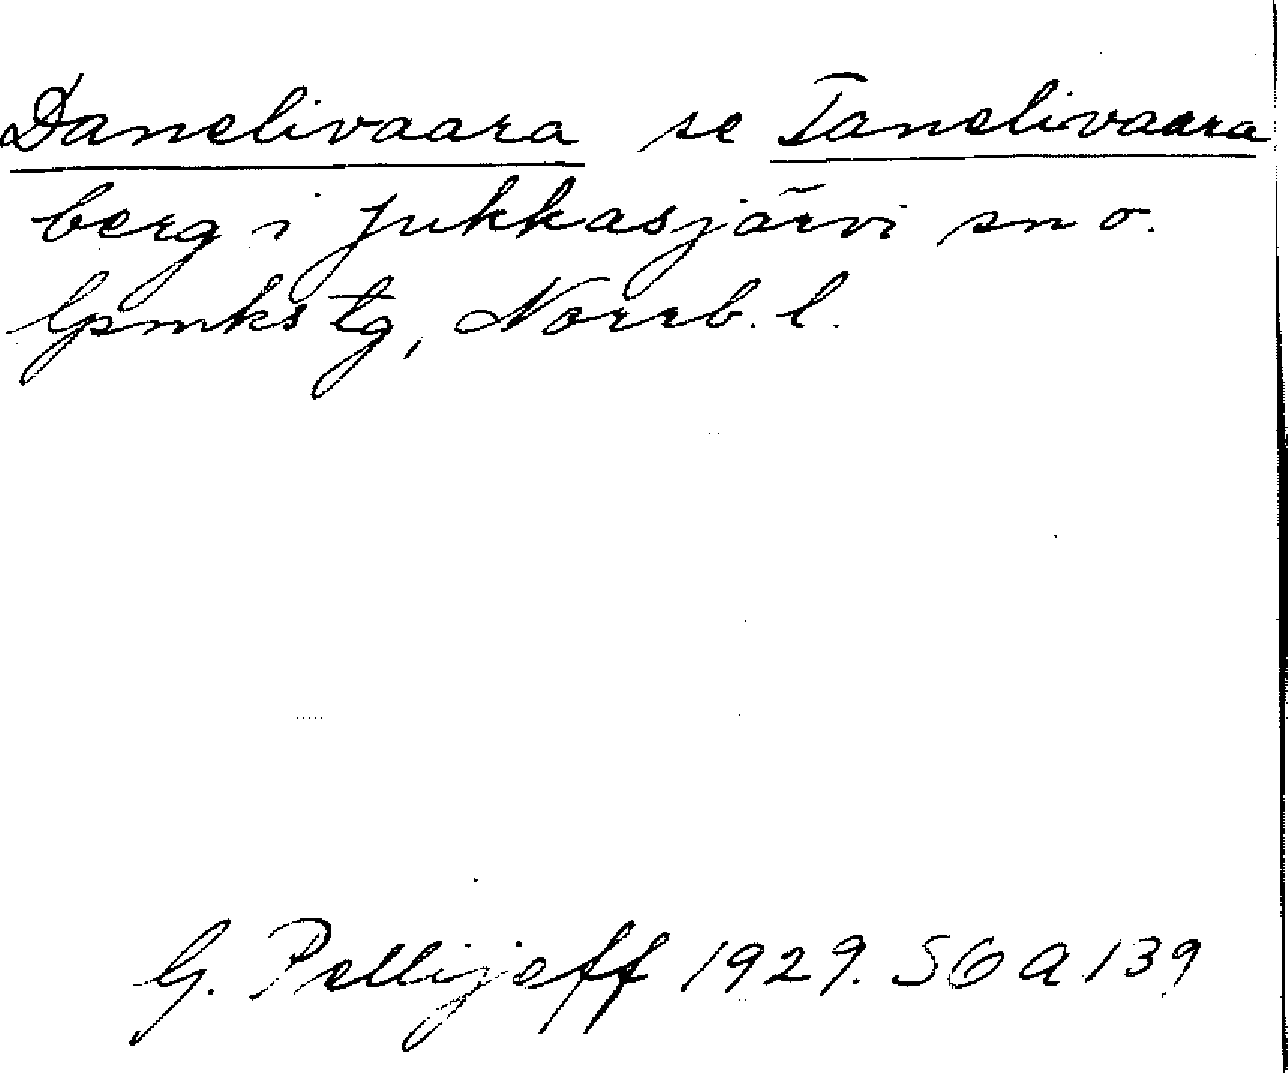 Danelivaara se Tanelivaara
berg i Jukkasjärvi sn o.
lpmks tg, Norrb. l.
G. Pellijeff 1929. SGA 139